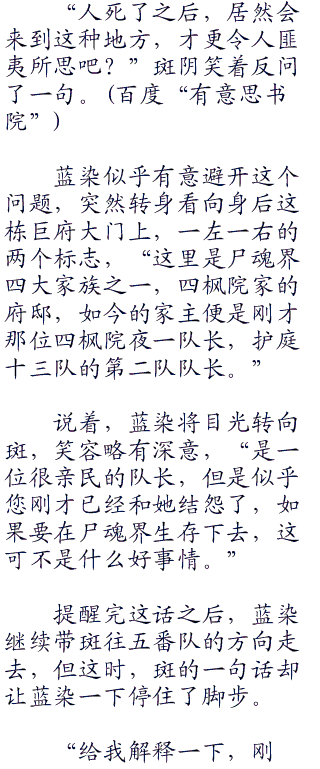 “人死了之后，居然会
来到这种地方，才更令人匪
夷所思吧？”斑阴笑着反问
了一句。(百度“有意思书
院”)
蓝染似乎有意避开这个
问题，突然转身看向身后这
栋巨府大门上，一左一右的
两个标志，“这里是尸魂界
四大家族之一，四枫院家的
府邸，如今的家主便是刚才
那位四枫院夜一队长，护庭
十三队的第二队队长。”
说着，蓝染将目光转向
斑，笑容略有深意，“是一
位很亲民的队长，但是似乎
您刚才已经和她结怨了，如
果要在尸魂界生存下去，这
可不是什么好事情。”
提醒完这话之后，蓝染
继续带斑往五番队的方向走
去，但这时，斑的一句话却
让蓝染一下停住了脚步。
“给我解释一下，刚